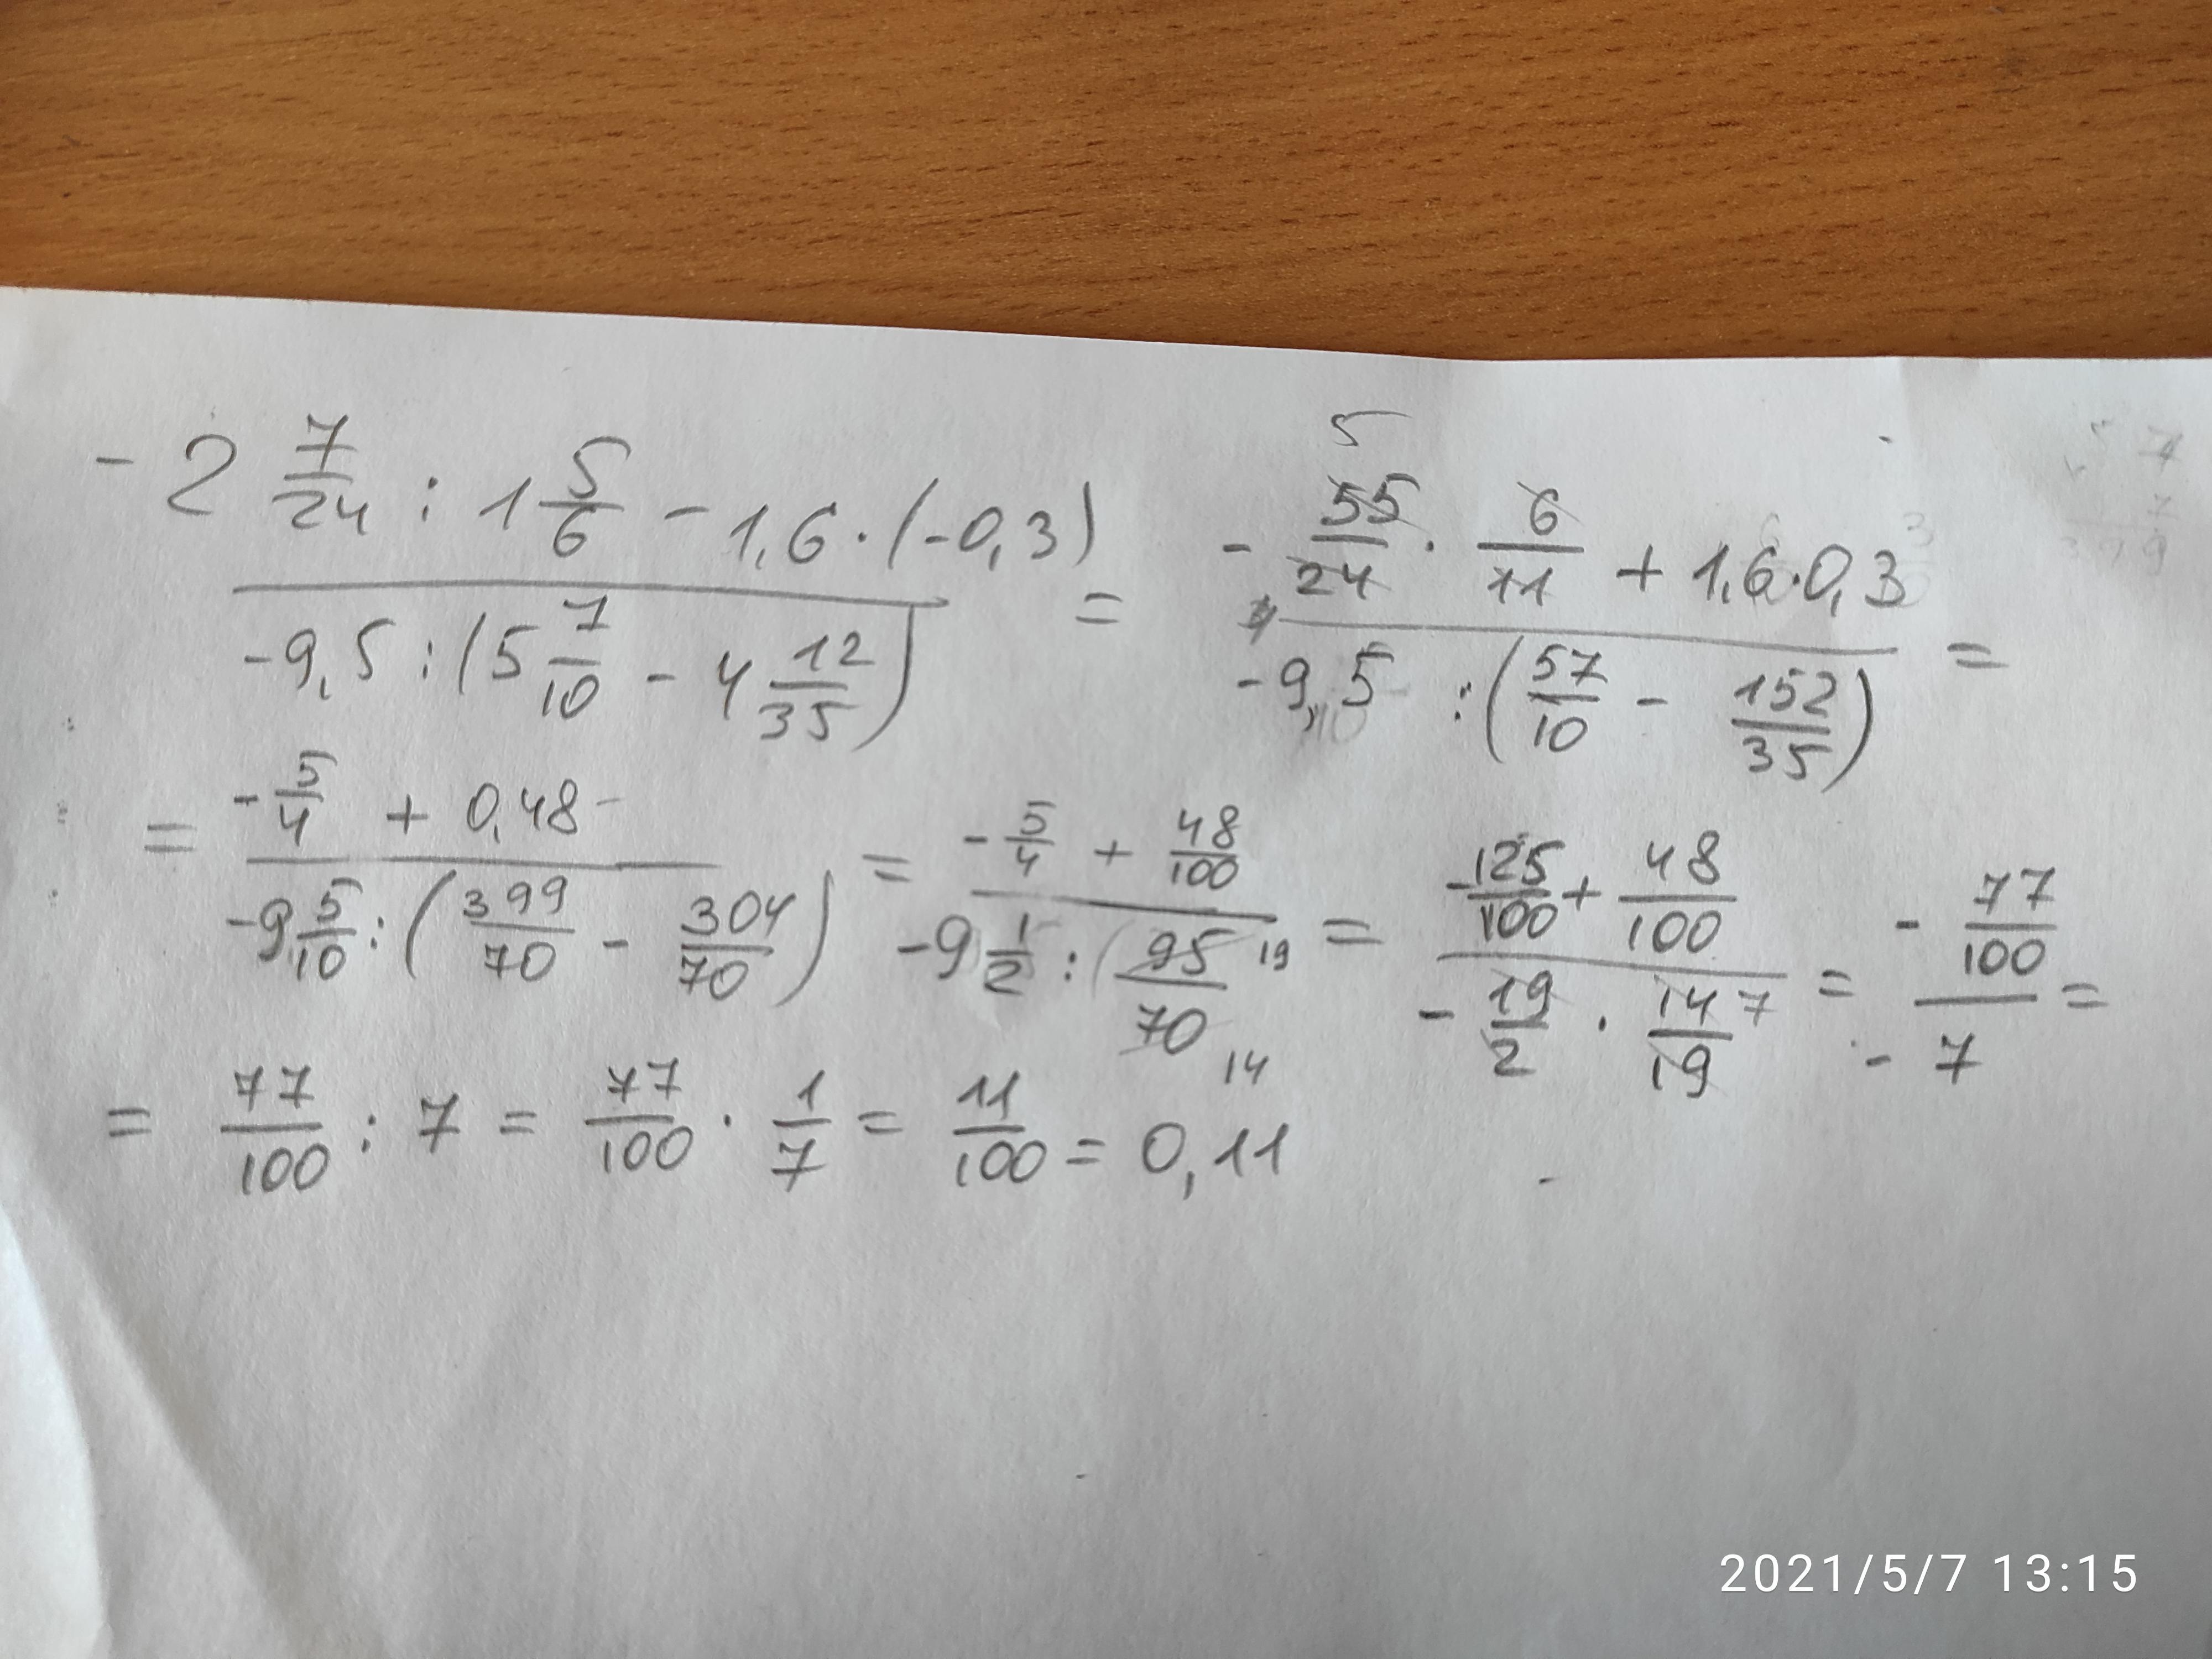 (-2 7/24 : 1 5/6 - 1,6 · (-0,3)) / (-9,5 : (5 7/10 - 4 12/35)) = (- 55/24 · 6/11 + 1,6 · 0,3) / (-9,5 : (57/10 - 152/35)) =
5
4
= (- 5/4 + 0,48) / (-9 5/10 : (399/70 - 304/70)) = (- 5/4 + 48/100) / (-9 1/2 : (95/70) = (- 125/100 + 48/100) / (- 19/2 · 14/19) = (- 77/100) / (- 7) =
19
14
7
= 77/100 : 7 = 77/100 · 1/7 = 11/100 = 0,11
2021/5/7 13:15